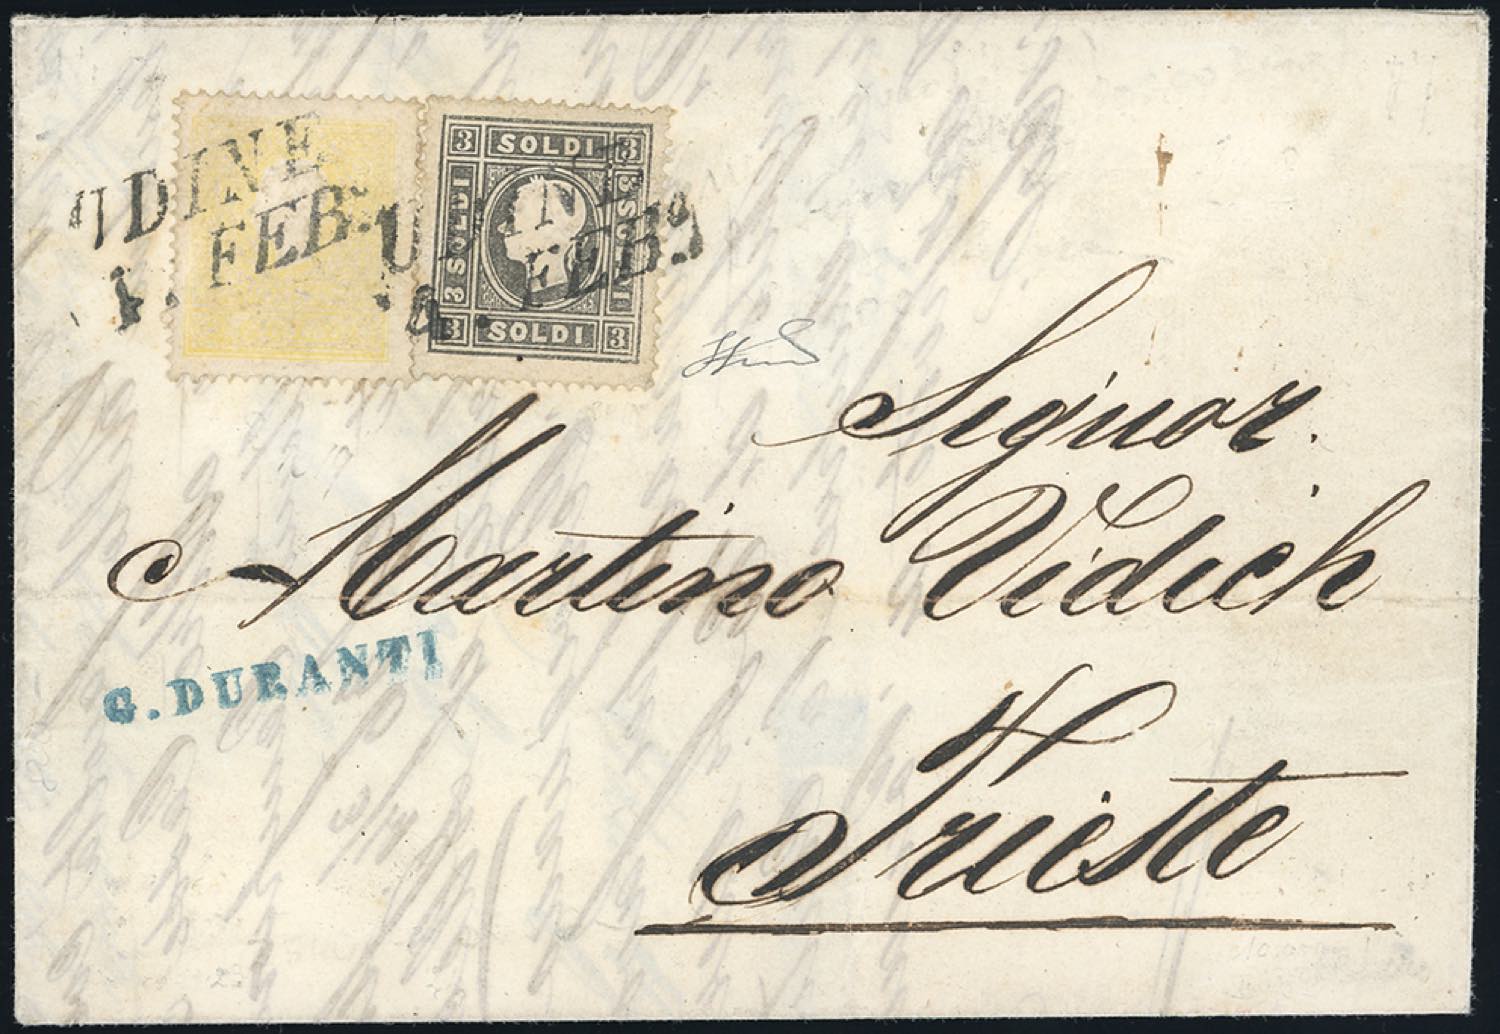 UDINE
4. FEB:
UDINE
4. FEB:
3 SOLDI 3
3 SOLDI
SOLDI
3 SOLDI 3
Signor.
Martino Vidich
G. DURANTI
Trieste